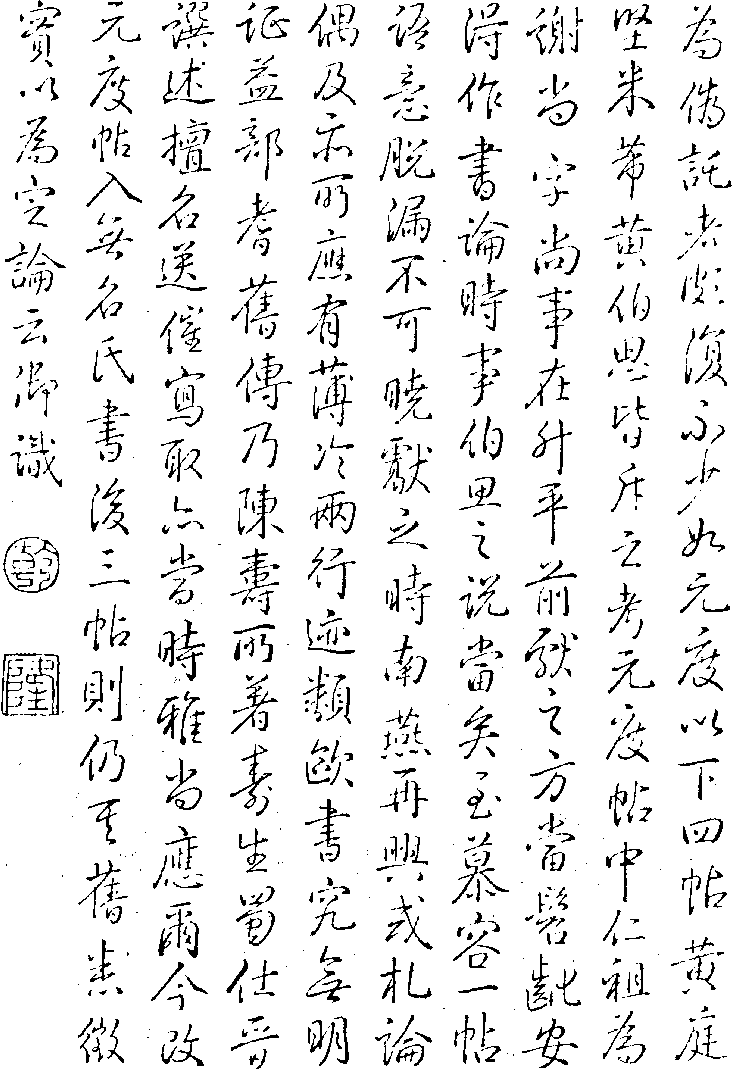 為偽託者頗復不少如元度以下四帖黃庭
堅米芾黃伯思皆斥之考元度帖中仁祖為
謝尚字尚事在升平前獻之方當髫齔安
得作書論時事伯思之説當矣至慕容一帖
語意脱漏不可曉獻之時南燕再興或札論
偶及亦所應有薄冷兩行迹類歐書究無明
証益部耆舊傳乃陳壽所著壽生蜀仕晉
譔述擅名送催寫取亦當時雅尚應爾今改
元度帖入無名氏書後三帖則仍其舊悉徵
實以為定論云御識